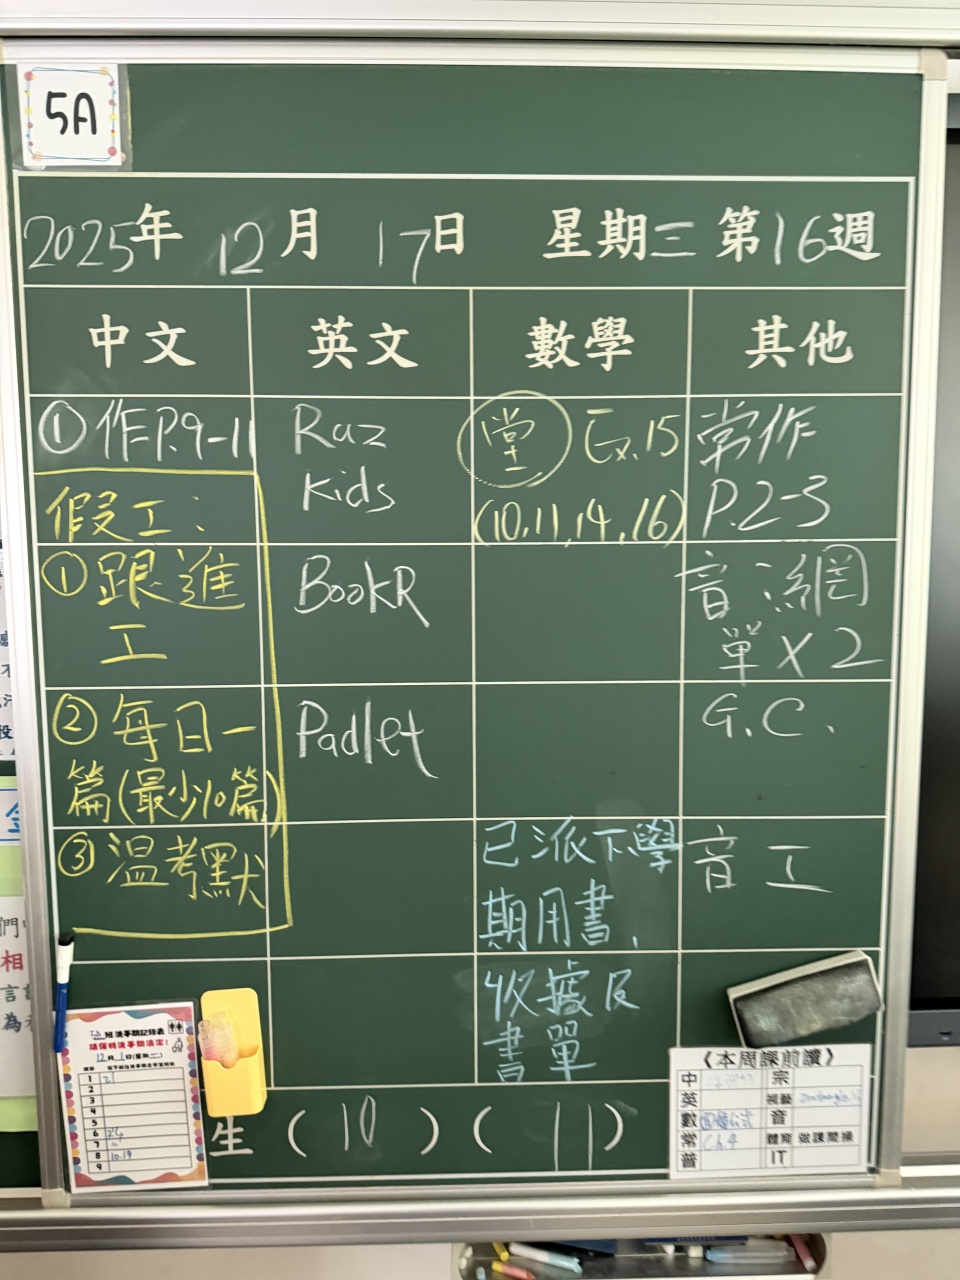 5A
2025年 12月 17日 星期三 第16週
中文 英文 數學 其他
①作P.9-11
假工：
①跟進
工
②每日一
篇(最少10篇)
③溫考默
Raz
Kids
BookR
Padlet
堂 Ex.15
(10,11,14,16)
已派下學
期用書、
收據及
書單
常作
P.2-3
音：網
單X2
G.C.
音工
生 (10) (11)
5A班洗手間記錄表
請保持洗手間清潔！
1 21
2
3
4
5
6 24
7
8 10.19
9
《本周課前讀》
中 宗
英 視藝
數 音
常 Ch.4 體育 做課間操
普 IT
們
相
言
為